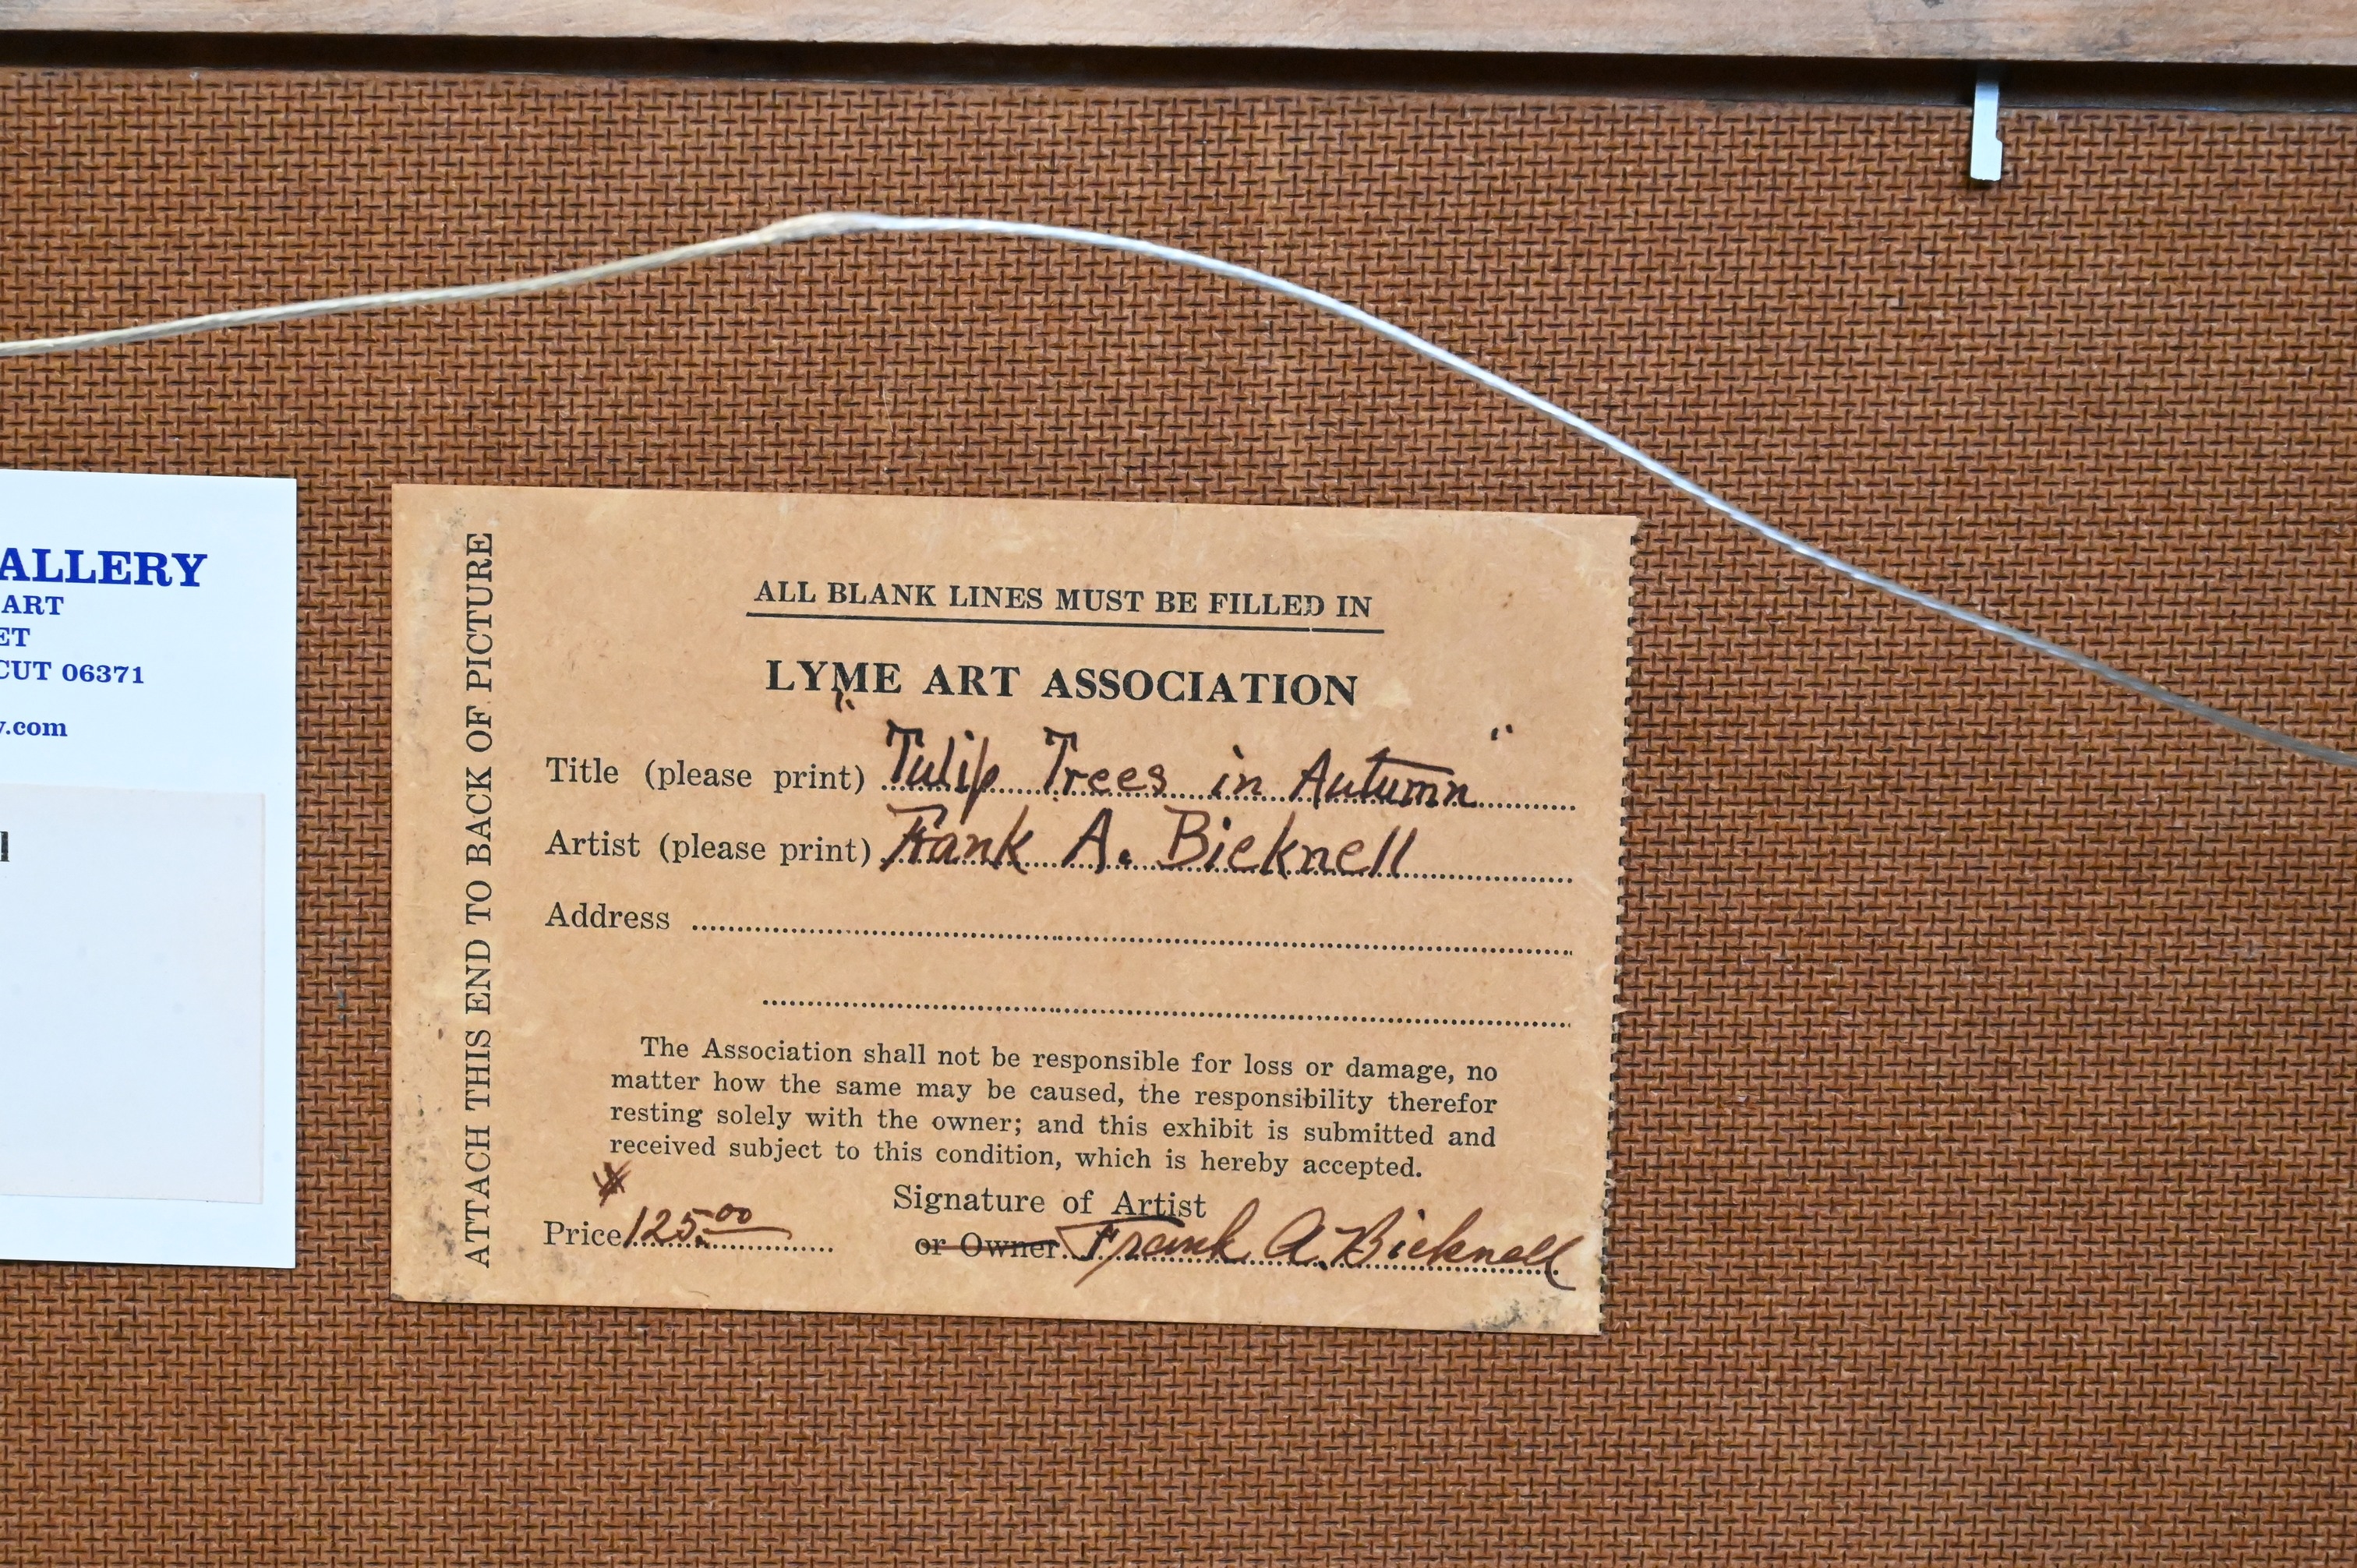 ALLERY
ART
ET
CUT 06371
y.com
l
ATTACH THIS END TO BACK OF PICTURE
ALL BLANK LINES MUST BE FILLED IN
LYME ART ASSOCIATION
Title (please print) "Tulip Trees in Autumn"
Artist (please print) Frank A. Bicknell
Address
The Association shall not be responsible for loss or damage, no
matter how the same may be caused, the responsibility therefor
resting solely with the owner; and this exhibit is submitted and
received subject to this condition, which is hereby accepted.
Signature of Artist
Price $125.00 or Owner Frank A. Bicknell